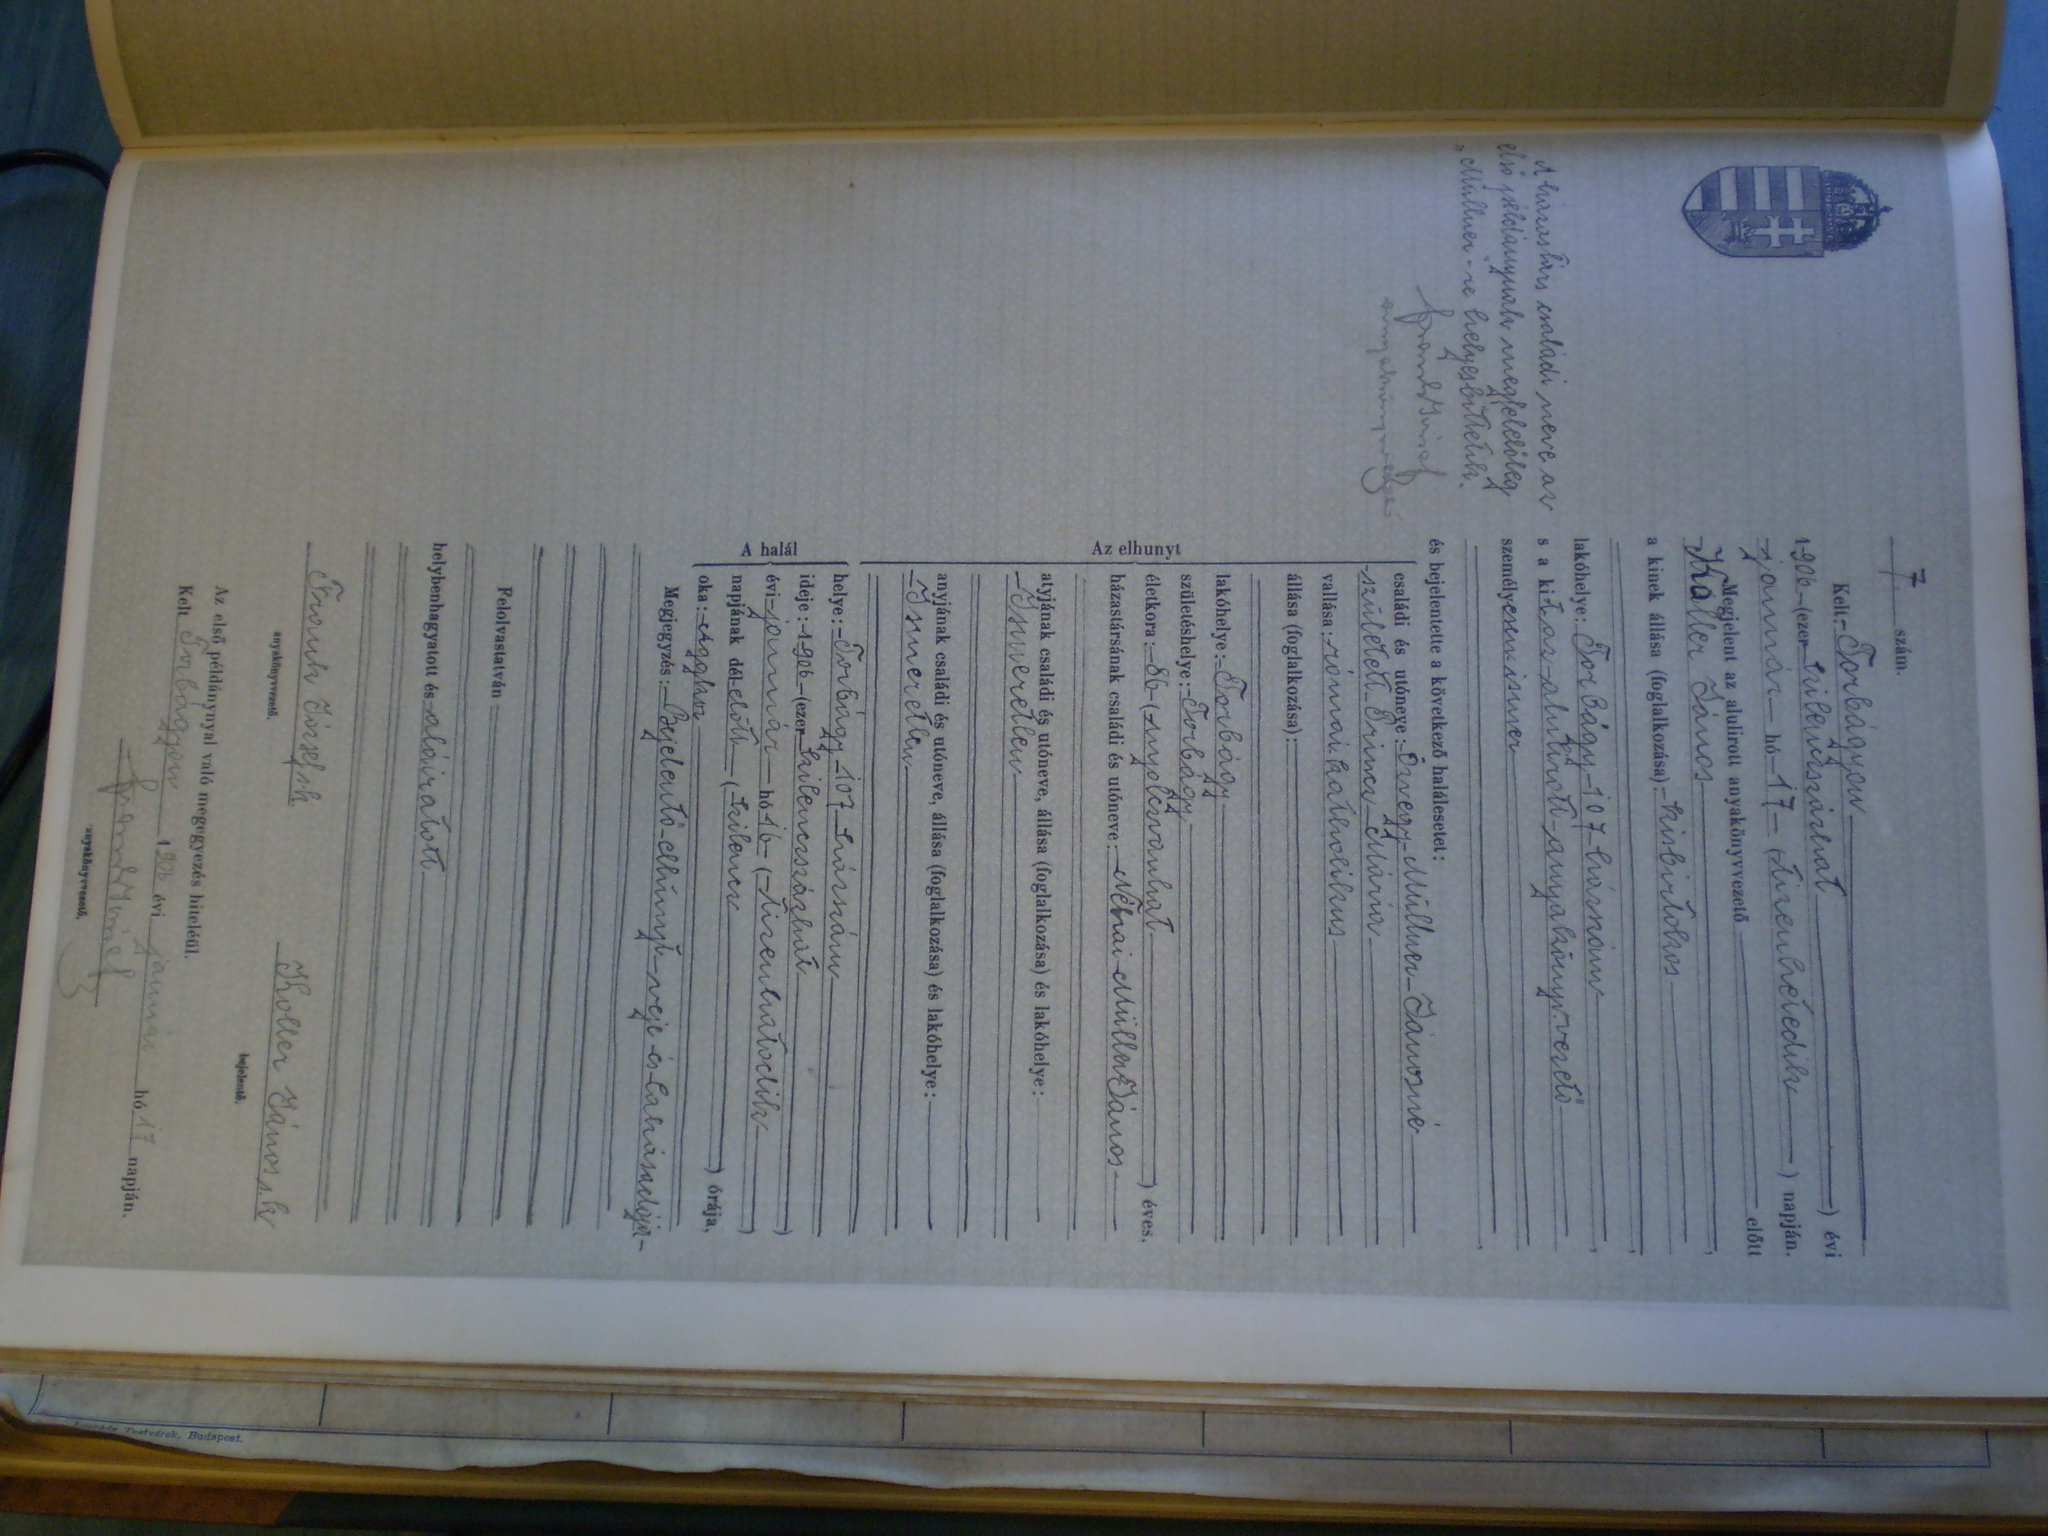 7. szám.
Kelt: Torbágyon
1906 (ezer kilencszázhat) évi
január hó 17 (tizenhetedik) napján.
Megjelent az alulirott anyakönyvvezető előtt
Koller János
a kinek állása (foglalkozása): kisbirtokos
lakóhelye: Torbágy 107 házszám,
s a kit az alulirott anyakönyvvezető
személyesen ismer,
és bejelentette a következő halálesetet:
A házastárs családi neve az
első példánynak megfelelőleg
"Müllner"-re helyesbittetik.
Frank József
anyakönyvvezető
Az elhunyt
családi és utóneve: Özvegy Müllner Jánosné
született Princz Mária
vallása: római katholikus
állása (foglalkozása):
lakóhelye: Torbágy
születéshelye: Torbágy
életkora: 86 (nyolczvanhat) éves.
házastársának családi és utóneve: Néhai Müllner János
atyjának családi és utóneve, állása (foglalkozása) és lakóhelye:
Ismeretlen
anyjának családi és utóneve, állása (foglalkozása) és lakóhelye:
Ismeretlen
A halál
helye: Torbágy 107 házszám
ideje: 1906 (ezer kilencszázhat)
évi január hó 16 (tizenhatodik)
napjának dél előtt (kilencz) órája,
oka: Aggkor
Megjegyzés: Bejelentő elhúnyt veje és lakásadója
Felolvastatván
helybenhagyatott és aláiratott
Frank József sk
anyakönyvvezető.
Koller János s.k
bejelentő.
Az első példánynyal való megegyezés hiteléül.
Kelt Torbágyon 1906 évi január hó 17 napján.
Frank József
anyakönyvvezető.
Testvérek, Budapest.